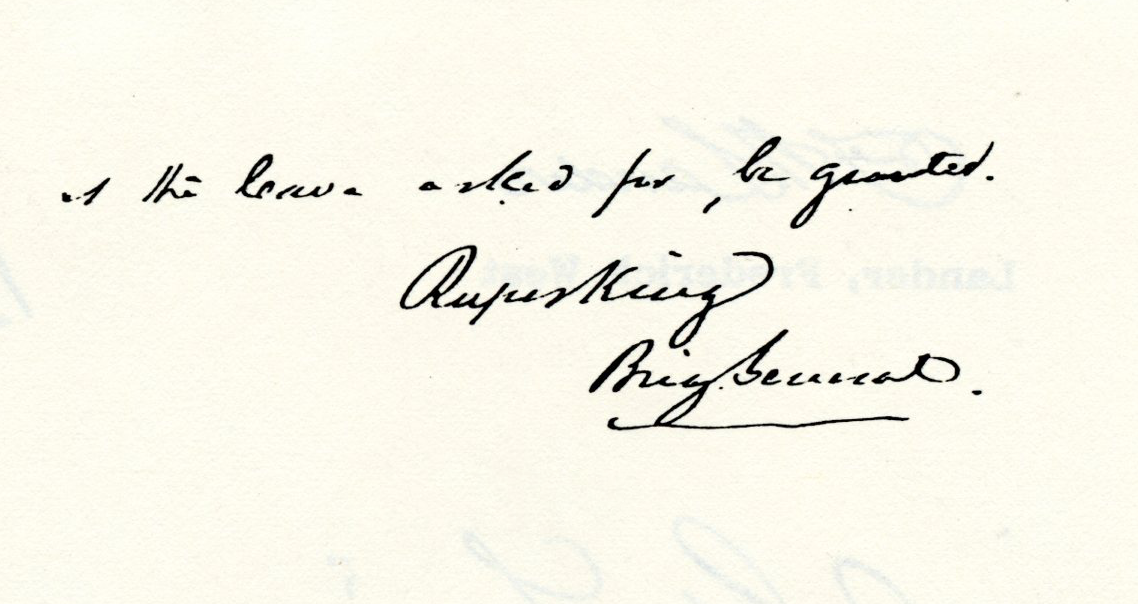 the leave asked for, be granted.
Rufus King
Brig General.
Lander, Frederick West